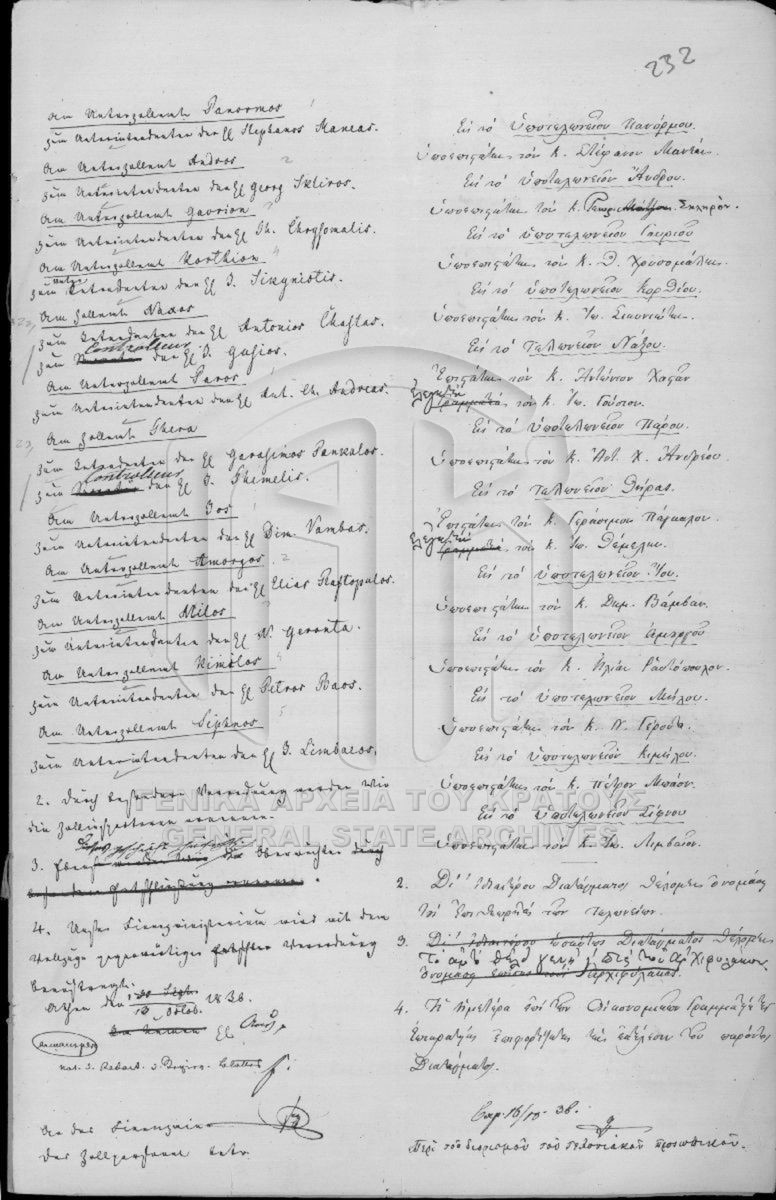 232
Am Unterzollamt Panormos
zum Unterintendenten der H Stephanos Maneas.
Am Unterzollamt Andros
zum Unterintendenten den H Georg Skliros.
Am Unterzollamt Gavrion
zum Unterintendenten den H Th. Chrysomalis.
Am Unterzollamt Korthion
zum Unter Intendenten den H J. Sikyniotis.
Am Zollamt Naxos
zum Intendenten den H Antonios Chaftas.
zum Controlleur den H J. Gusios.
Am Unterzollamt Paros
zum Unterintendenten den H Ant. Ch. Andreas.
Am Zollamt Thera
zum Intendenten den H Gerasimos Pankalos.
zum Controlleur den H J. Themelis.
Am Unterzollamt Jos
zum Unterintendenten den H Dim. Vambas.
Am Unterzollamt Amorgos
zum Unterintendenten den H Elias Raftopulos.
Am Unterzollamt Milos
zum Unterintendenten den H N. Geronta.
Am Unterzollamt Kimolos
zum Unterintendenten den H Petros Baos.
Am Unterzollamt Siphnos
zum Unterintendenten den H J. Limbaeos.
2. Durch besondere Verordnung werden Wir
die Zollinspektoren ernennen.
3. Oberwächter durch
4. Unser Finanzministerium wird mit dem
Vollzuge gegenwärtiger Verordnung
beauftragt.
Athen den 1838.
An das Finanzmin
das Zollpersonal betr.
Εἰς τὸ ὑποτελωνεῖον Πανόρμου.
ὑποεπιστάτης τὸν Κ. Στέφανον Μανέαν.
Εἰς τὸ ὑποτελωνεῖον Ἄνδρου.
ὑποεπιστάτης τὸν Κ. Γεωρ. Σκληρόν.
Εἰς τὸ ὑποτελωνεῖον Γαυρίου
ὑποεπιστάτης τὸν Κ. Θ. Χρυσομάλης.
Εἰς τὸ ὑποτελωνεῖον Κορθίου.
ὑποεπιστάτης τὸν Κ. Ἰω. Σικινιώτην.
Εἰς τὸ Τελωνεῖον Νάξου.
Ἐπιστάτης τὸν Κ. Ἀντώνιον Χαφᾶν
Ἐλεγκτὴν τὸν Κ. Ἰω. Γούσιον.
Εἰς τὸ ὑποτελωνεῖον Πάρου.
ὑποεπιστάτης τὸν Κ. Ἀντ. Χ. Ἀνδρέου.
Εἰς τὸ Τελωνεῖον Θήρας.
Ἐπιστάτης τὸν Κ. Γεράσιμον Πάγκαλον.
Ἐλεγκτὴν τὸν Κ. Ἰω. Θέμελην.
Εἰς τὸ ὑποτελωνεῖον Ἴου.
ὑποεπιστάτης τὸν Κ. Δημ. Βάμβαν.
Εἰς τὸ ὑποτελωνεῖον Ἀμοργοῦ
ὑποεπιστάτης τὸν Κ. Ἠλίαν Ῥαφτόπουλον.
Εἰς τὸ ὑποτελωνεῖον Μήλου.
ὑποεπιστάτης τὸν Κ. Ν. Γερόντα.
Εἰς τὸ ὑποτελωνεῖον Κιμώλου.
ὑποεπιστάτης τὸν Κ. Πέτρον Μπάον.
Εἰς τὸ ὑποτελωνεῖον Σίφνου
ὑποεπιστάτης τὸν Κ. Ἰω. Λιμβαῖον.
2. Δι' ἰδιαιτέρου Διατάγματος θέλομεν ὀνομάσῃ
τοὺς ἐπιθεωρητὰς τῶν τελωνείων.
3. Δι' ἰδιαιτέρου ὡσαύτως Διατάγματος θέλομεν
Τὸ αὐτὸ θέλει γένῃ
ὀνομάσῃ ἀρχιφύλακας.
4. Ἡ Ἡμετέρα ἐπὶ τῶν Οἰκονομικῶν Γραμματεία τῆς
Ἐπικρατείας ἐπιφορτίζεται τὴν ἐκτέλεσιν τοῦ παρόντος
Διατάγματος.
Περὶ τοῦ διορισμοῦ τοῦ τελωνιακοῦ προσωπικοῦ.
ΓΕΝΙΚΑ ΑΡΧΕΙΑ ΤΟΥ ΚΡΑΤΟΥΣ
GENERAL STATE ARCHIVES